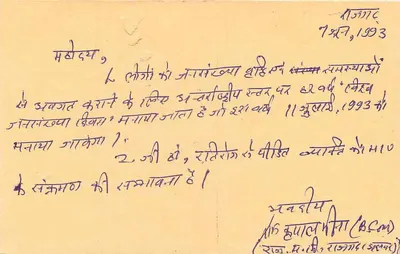 राजगढ़
7 जून, 1993
महोदय,
1. लोगों को जनसंख्या वृद्धि एवं समस्याओं
से अवगत कराने के लिए अन्तर्राष्ट्रीय स्तर पर हर वर्ष 'विश्व
जनसंख्या दिवस' मनाया जाता है जो इस वर्ष 11 जुलाई, 1993 को
मनाया जावेगा।
2. जी हाँ, रतिरोग से पीड़ित व्यक्ति को HIV
के संक्रमण की सम्भावना है।
भवदीय
कृपाल मीणा (B.Com)
राज. म. वि. राजगढ़ अलवर)